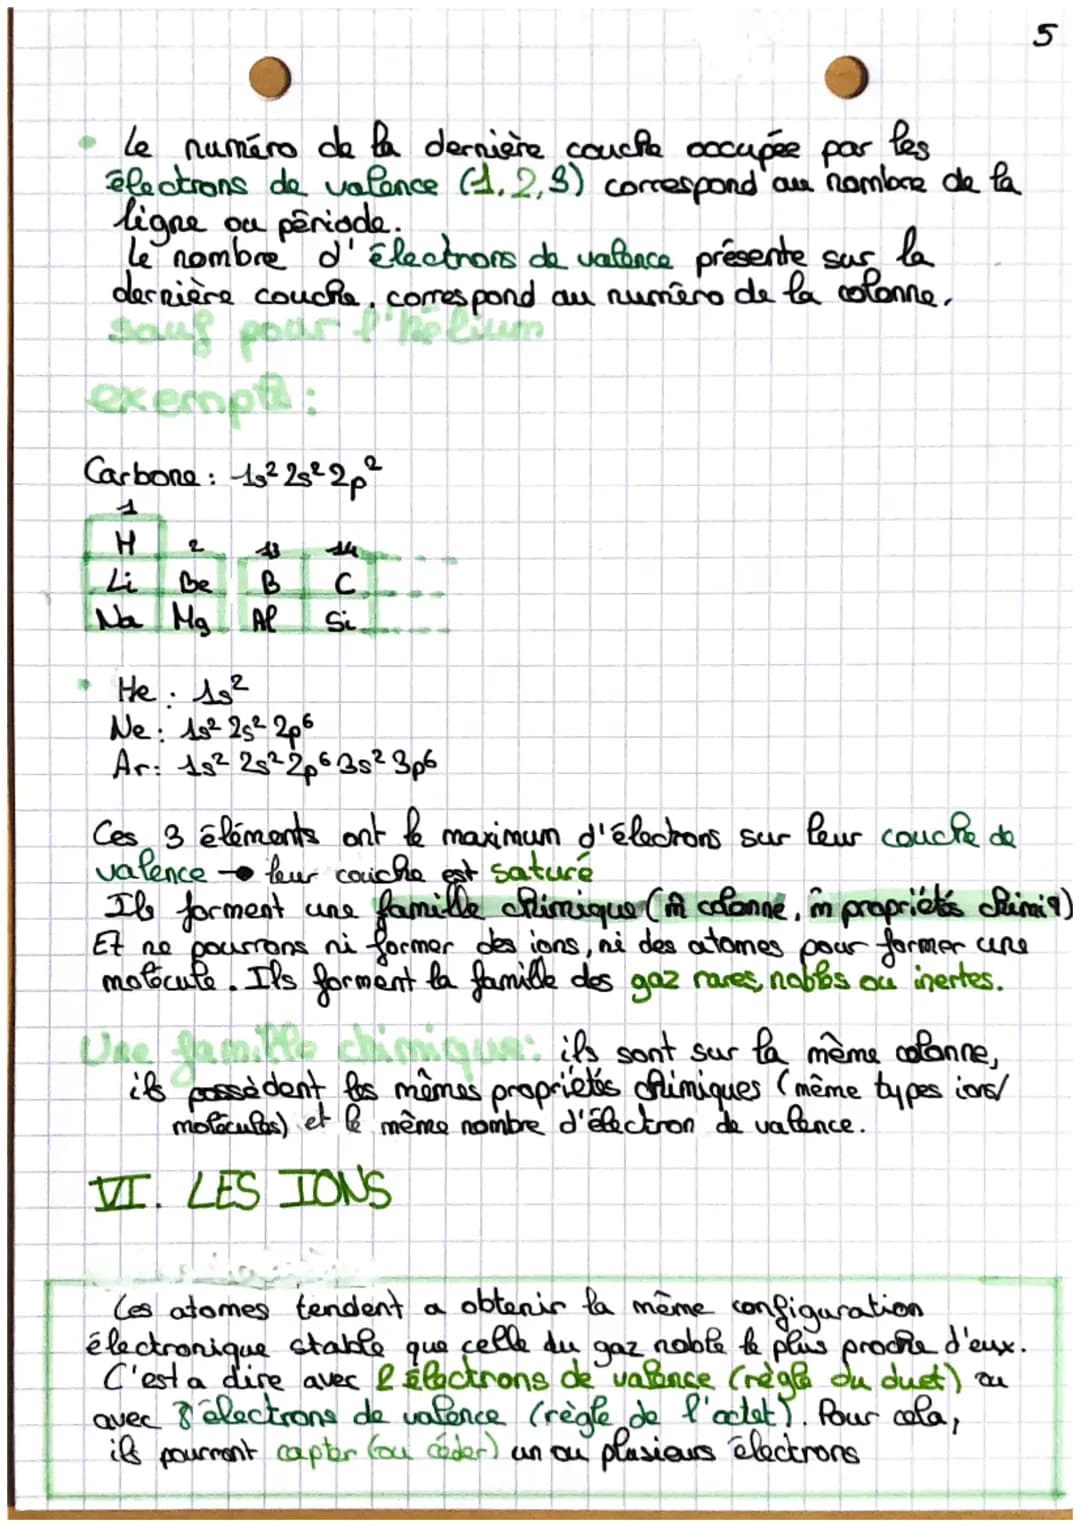 5
• Le numéro de la dernière couche occupée par les
électrons de valence (1, 2, 3) correspond au nombre de la
ligne ou période.
Le nombre d'électrons de valence présente sur la
dernière couche, correspond au numéro de la colonne,
sauf pour l'hélium
exemple :
Carbone : 1s² 2s² 2p²
1
H 2 13 14
Li Be B C
Na Mg Al Si
• He : 1s²
Ne : 1s² 2s² 2p⁶
Ar : 1s² 2s² 2p⁶ 3s² 3p⁶
Ces 3 éléments ont le maximum d'électrons sur leur couche de
valence → leur couche est saturé
Ils forment une famille chimique (m̂ colonne, m̂ propriétés chimiq)
Et ne pourrons ni former des ions, ni des atomes pour former une
molécule. Ils forment la famille des gaz rares, nobles ou inertes.
Une famille chimique : ils sont sur la même colonne,
ils possèdent les mêmes propriétés chimiques (même types ions/
molécules) et le même nombre d'électron de valence.
VI. LES IONS
Les atomes tendent a obtenir la même configuration
électronique stable que celle du gaz noble le plus proche d'eux.
C'est a dire avec 2 électrons de valence (règle du duet) ou
avec 8 électrons de valence (règle de l'octet). Pour cela,
ils pourront capter (ou céder) un ou plusieurs électrons